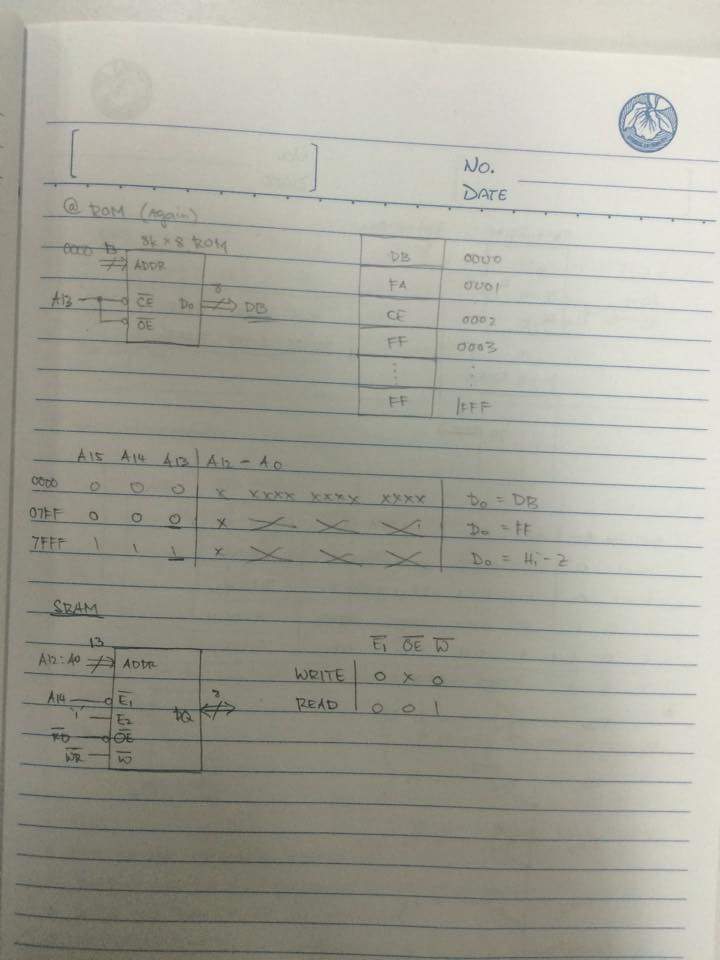 NO.
DATE
@ ROM (Again)
8k × 8 ROM
0000 13 ADDR
A13 CE D0 8 DB
OE
DB 0000
FA 0001
CE 0002
FF 0003
⋮ ⋮
FF 1FFF
A15 A14 A13 A12 - A0
0000 0 0 0 x xxxx xxxx xxxx D0 = DB
07FF 0 0 0 x D0 = FF
7FFF 1 1 1 x D0 = Hi-Z
SRAM
13
A12:A0 ADDR
A14 E1 DQ 8
'1' E2
RD OE
WR W
E1 OE W
WRITE 0 x 0
READ 0 0 1